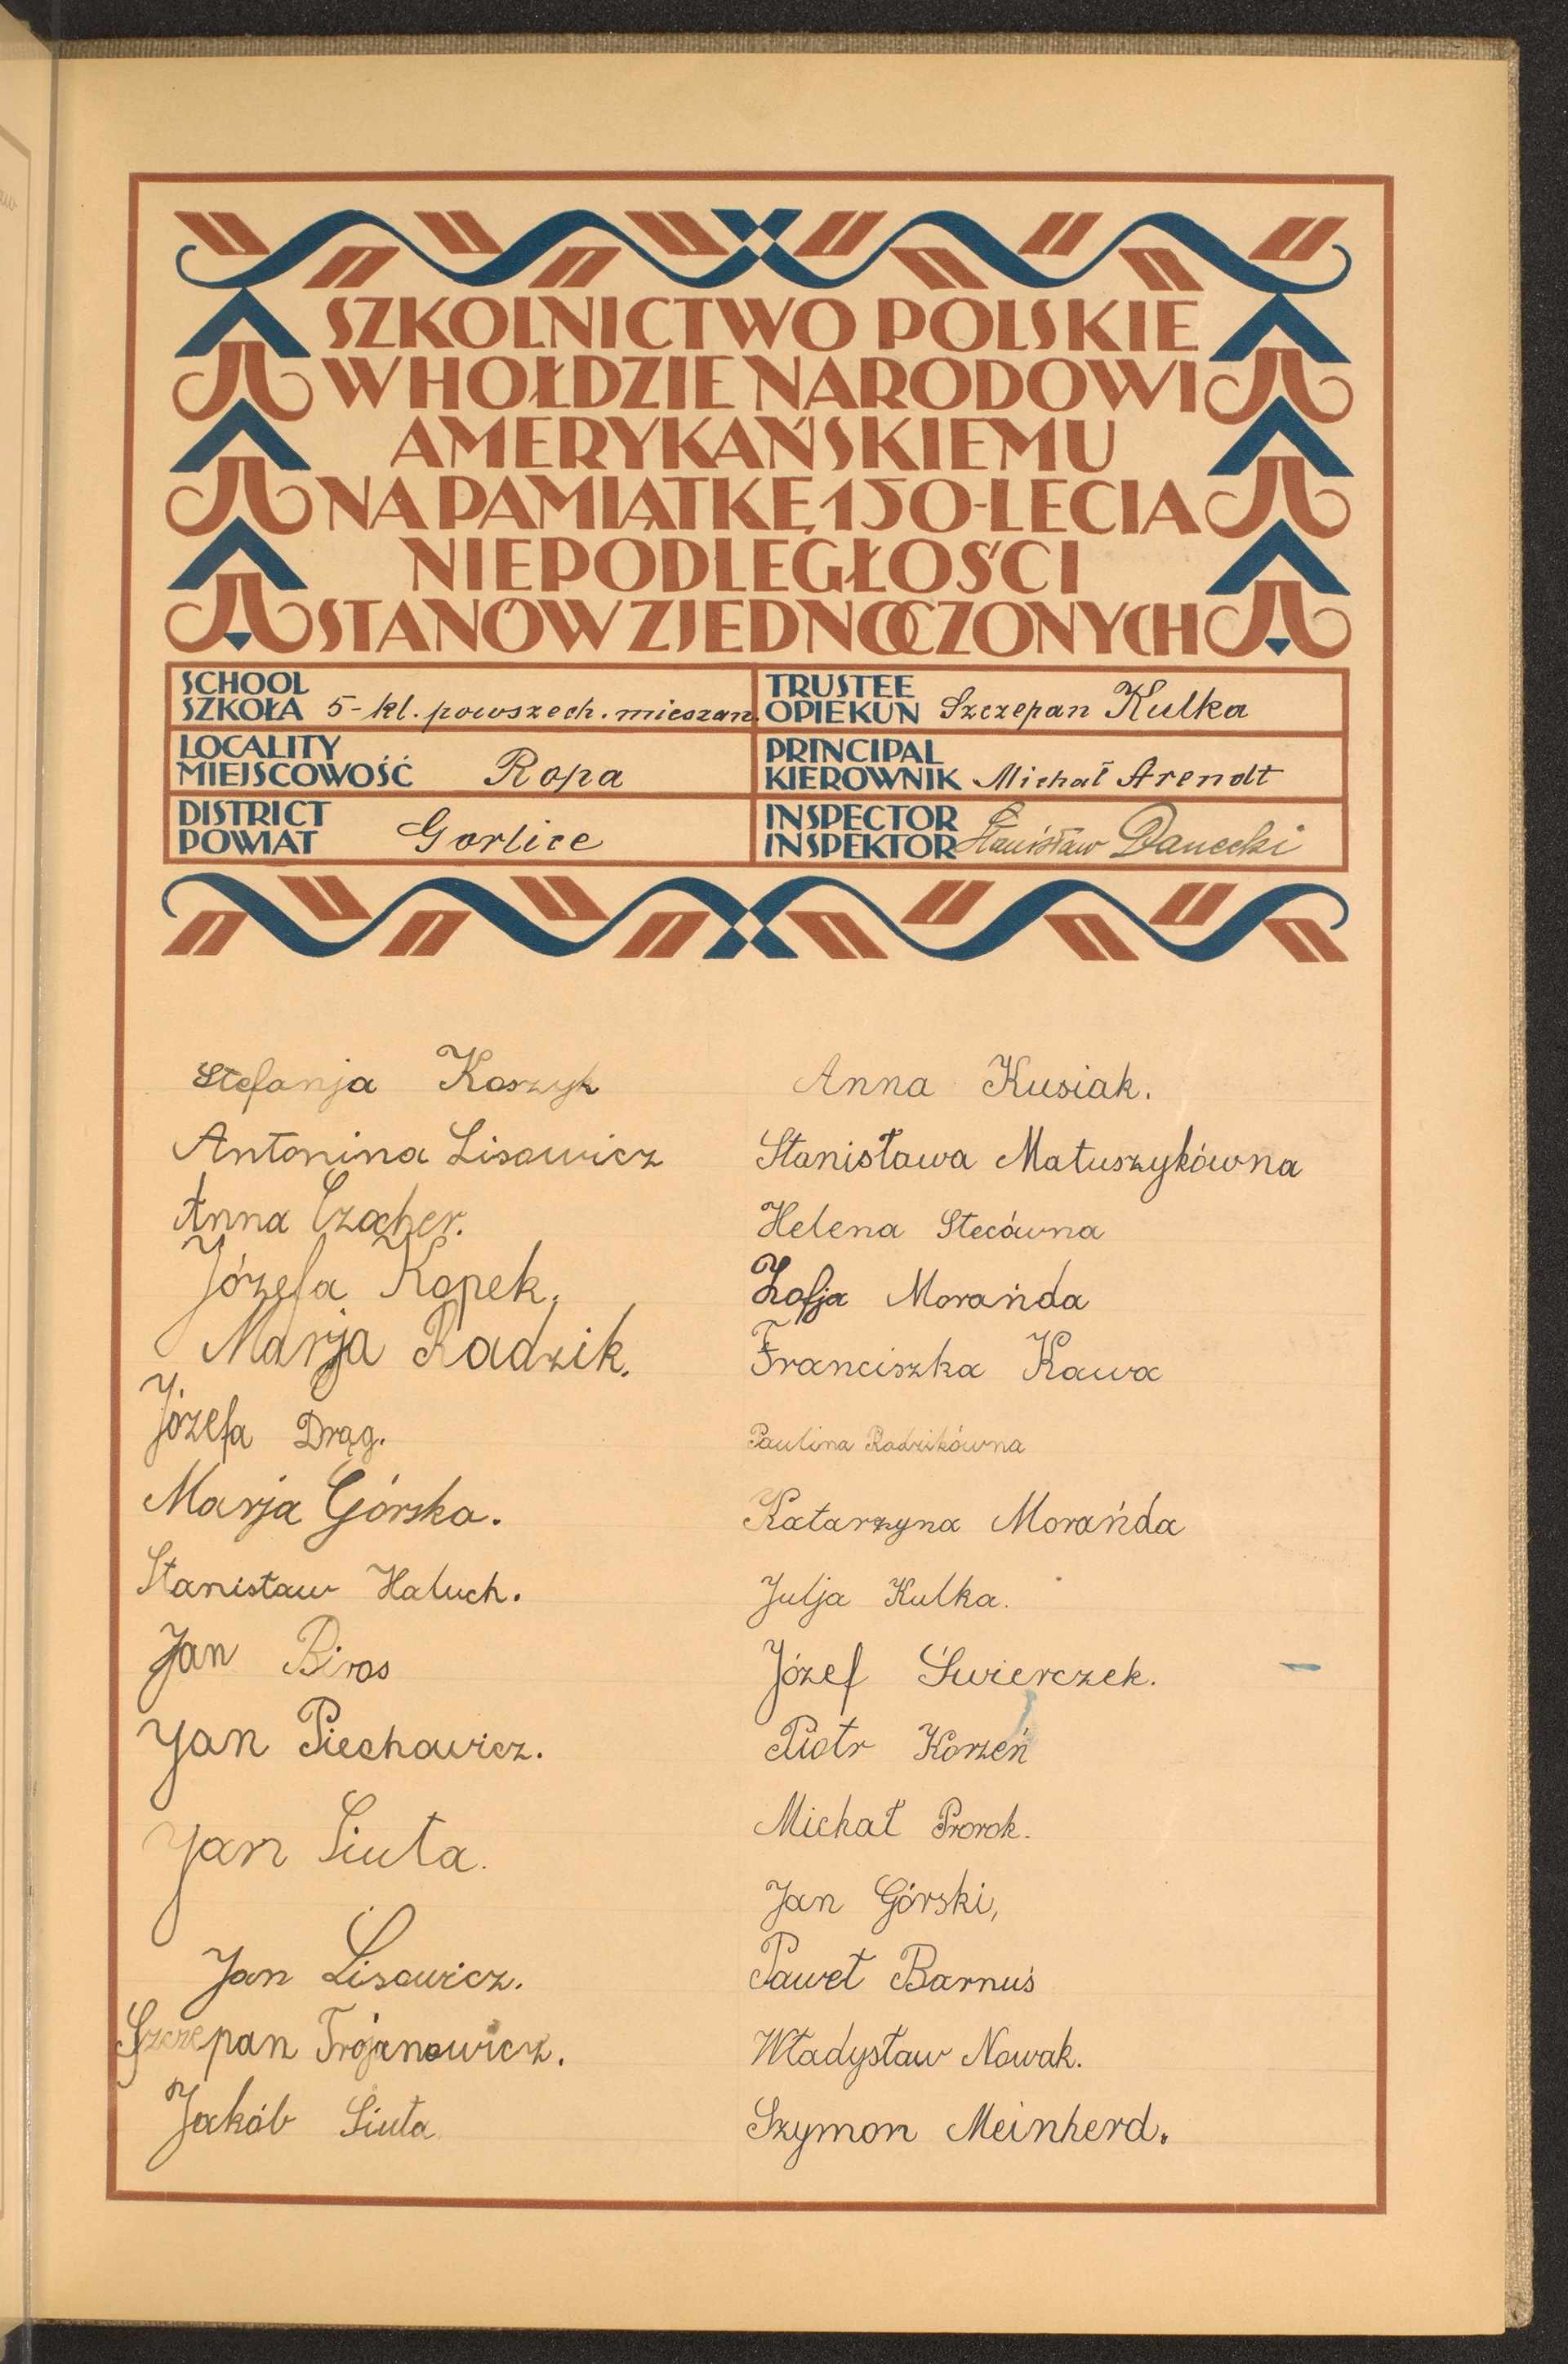 SZKOLNICTWO POLSKIE
W HOŁDZIE NARODOWI
AMERYKAŃSKIEMU
NA PAMIĄTKĘ 150-LECIA
NIEPODLEGŁOŚCI
STANÓW ZJEDNOCZONYCH
SCHOOL
SZKOŁA 5-kl. powszech. mieszan.
TRUSTEE
OPIEKUN Szczepan Kulka
LOCALITY
MIEJSCOWOŚĆ Ropa
PRINCIPAL
KIEROWNIK Michał Arendt
DISTRICT
POWIAT Gorlice
INSPECTOR
INSPEKTOR Stanisław Danecki
Stefanja Koszyk
Antonina Lisowicz
Anna Czocher.
Józefa Kopek.
Marja Radzik.
Józefa Drąg.
Marja Górska.
Stanisław Haluch.
Jan Biros
Jan Piechowicz.
Jan Siuta.
Jan Lisowicz.
Szczepan Trojanowicz.
Jakób Siuta
Anna Kusiak.
Stanisława Matuszykówna
Helena Stecówna
Zofja Morańda
Franciszka Kawa
Paulina Radzikówna
Katarzyna Morańda
Julja Kulka.
Józef Świerczek.
Piotr Korzeń
Michał Prorok.
Jan Górski,
Paweł Barnuś
Władysław Nowak.
Szymon Meinherd.